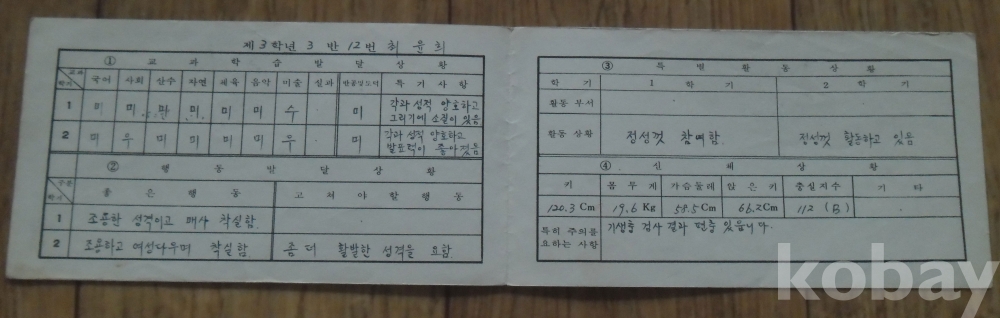 제 3 학년 3 반 12 번 최 윤 희
① 교 과 학 습 발 달 상 황
교과 학기 국어 사회 산수 자연 체육 음악 미술 실과 반공및도덕 특 기 사 항
1 미 미 미 미 미 수 · 미 각과 성적 양호하고 그리기에 소질이 있음
2 미 우 미 미 미 미 우 · 미 각과 성적 양호하고 발표력이 좋아졌음
② 행 동 발 달 상 황
구분 학기 좋 은 행 동 고 쳐 야 할 행 동
1 조용한 성격이고 매사 착실함.
2 조용하고 여성다우며 착실함. 좀 더 활발한 성격을 요함.
③ 특 별 활 동 상 황
학 기 1 학 기 2 학 기
활동 부서
활동 상황 정성껏 참여함. 정성껏 활동하고 있음
④ 신 체 상 황
키 몸 무 게 가슴둘레 앉 은 키 충실지수 기 타
120.3 Cm 19.6 Kg 58.5 Cm 66.2 Cm 112 (B)
특히 주의를 요하는 사항 기생충 검사 결과 편충 있읍니다.
kobay